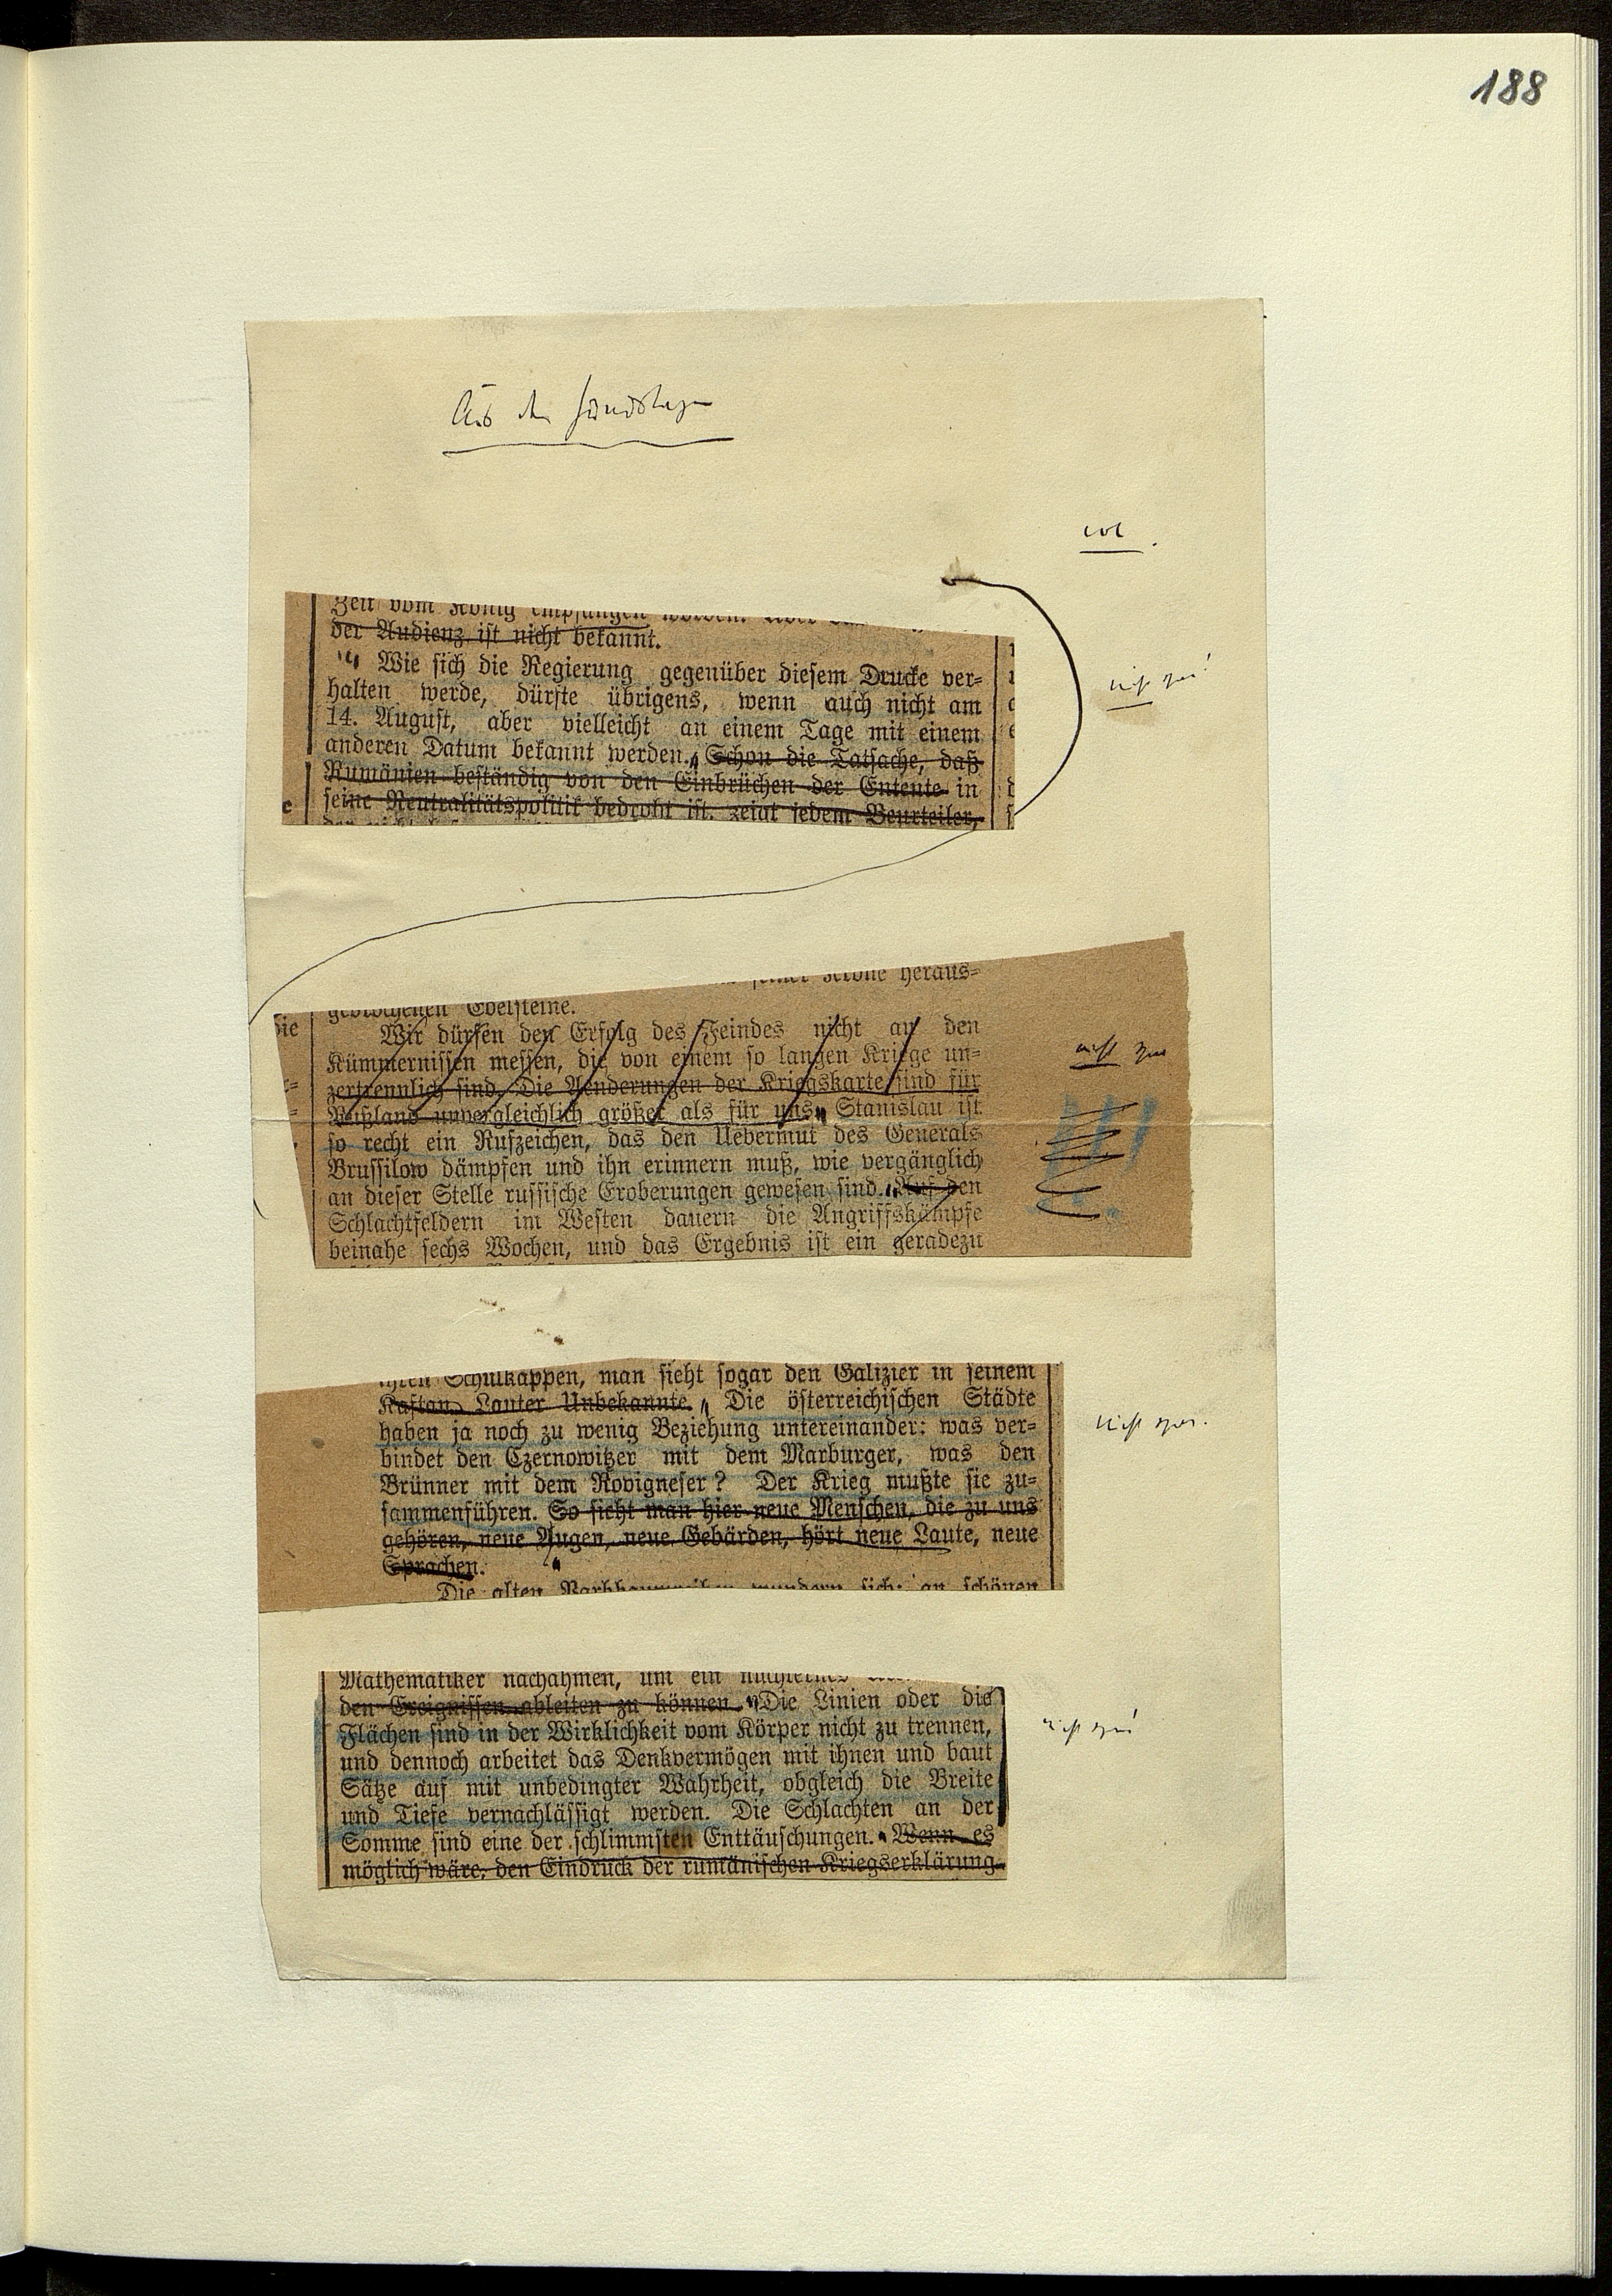 188
Aus den Hundstagen
Zeit vom König empfangen worden.
der Audienz ist nicht bekannt.
" Wie sich die Regierung gegenüber diesem Drucke ver-
halten werde, dürfte übrigens, wenn auch nicht am
14. August, aber vielleicht an einem Tage mit einem
anderen Datum bekannt werden. " Schon die Tatsache, daß
Rumänien beständig von den Einbrüchen der Entente in
seine Neutralitätspolitik bedroht ist, zeigt jedem Beurteiler,
nicht
seiner Krone heraus-
gebrochenen Edelsteine.
Wir dürfen den Erfolg des Feindes nicht an den
Kümmernissen messen, die von einem so langen Kriege un-
zertrennlich sind. Die Aenderungen der Kriegskarte sind für
Rußland unvergleichlich größer als für uns. " Stanislau ist
so recht ein Rufzeichen, das den Uebermut des Generals
Brussilow dämpfen und ihn erinnern muß, wie vergänglich
an dieser Stelle russische Eroberungen gewesen sind. " Auf den
Schlachtfeldern im Westen dauern die Angriffskämpfe
beinahe sechs Wochen, und das Ergebnis ist ein geradezu
nicht
ihren Schulkappen, man sieht sogar den Galizier in seinem
Kaftan. Lauter Unbekannte. " Die österreichischen Städte
haben ja noch zu wenig Beziehung untereinander: was ver-
bindet den Czernowitzer mit dem Marburger, was den
Brünner mit dem Rovigneser? Der Krieg mußte sie zu-
sammenführen. So sieht man hier neue Menschen, die zu uns
gehören, neue Augen, neue Gebärden, hört neue Laute, neue
Sprachen. "
Die alten wundern sich: an schönen
nicht
Mathematiker nachahmen, um ein
den Ereignissen ableiten zu können. " Die Linien oder die
Flächen sind in der Wirklichkeit vom Körper nicht zu trennen,
und dennoch arbeitet das Denkvermögen mit ihnen und baut
Sätze auf mit unbedingter Wahrheit, obgleich die Breite
und Tiefe vernachlässigt werden. Die Schlachten an der
Somme sind eine der schlimmsten Enttäuschungen. " Wenn es
möglich wäre, den Eindruck der rumänischen Kriegserklärung
nicht